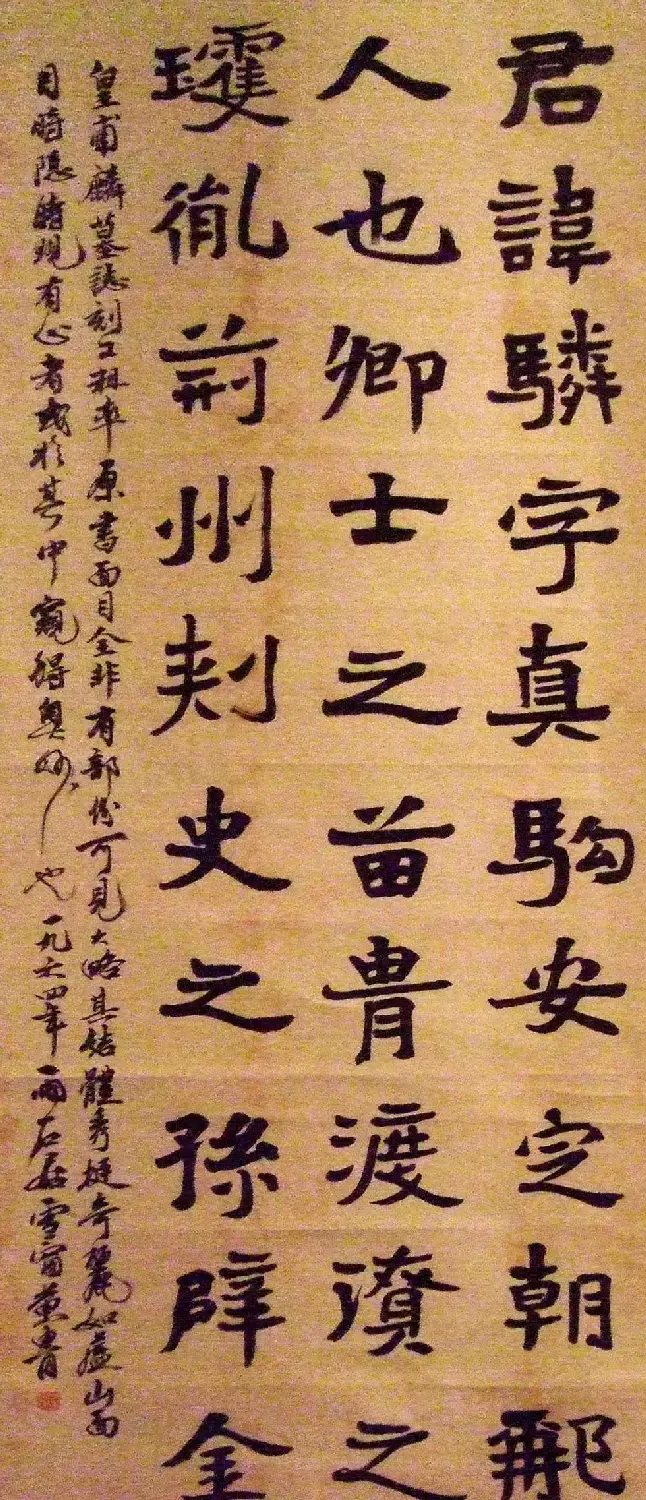 君諱驎字真駒安定朝那
人也卿士之苗胄渡潦之
胤荊州刺史之孫辟金
皇甫麟墓誌刻工粗率原書面目全非有部份可見大略其結體秀挺奇麗如廬山面
目時隱時現有心者或於其中窺得奧妙也一九六四年雨石居雪窗